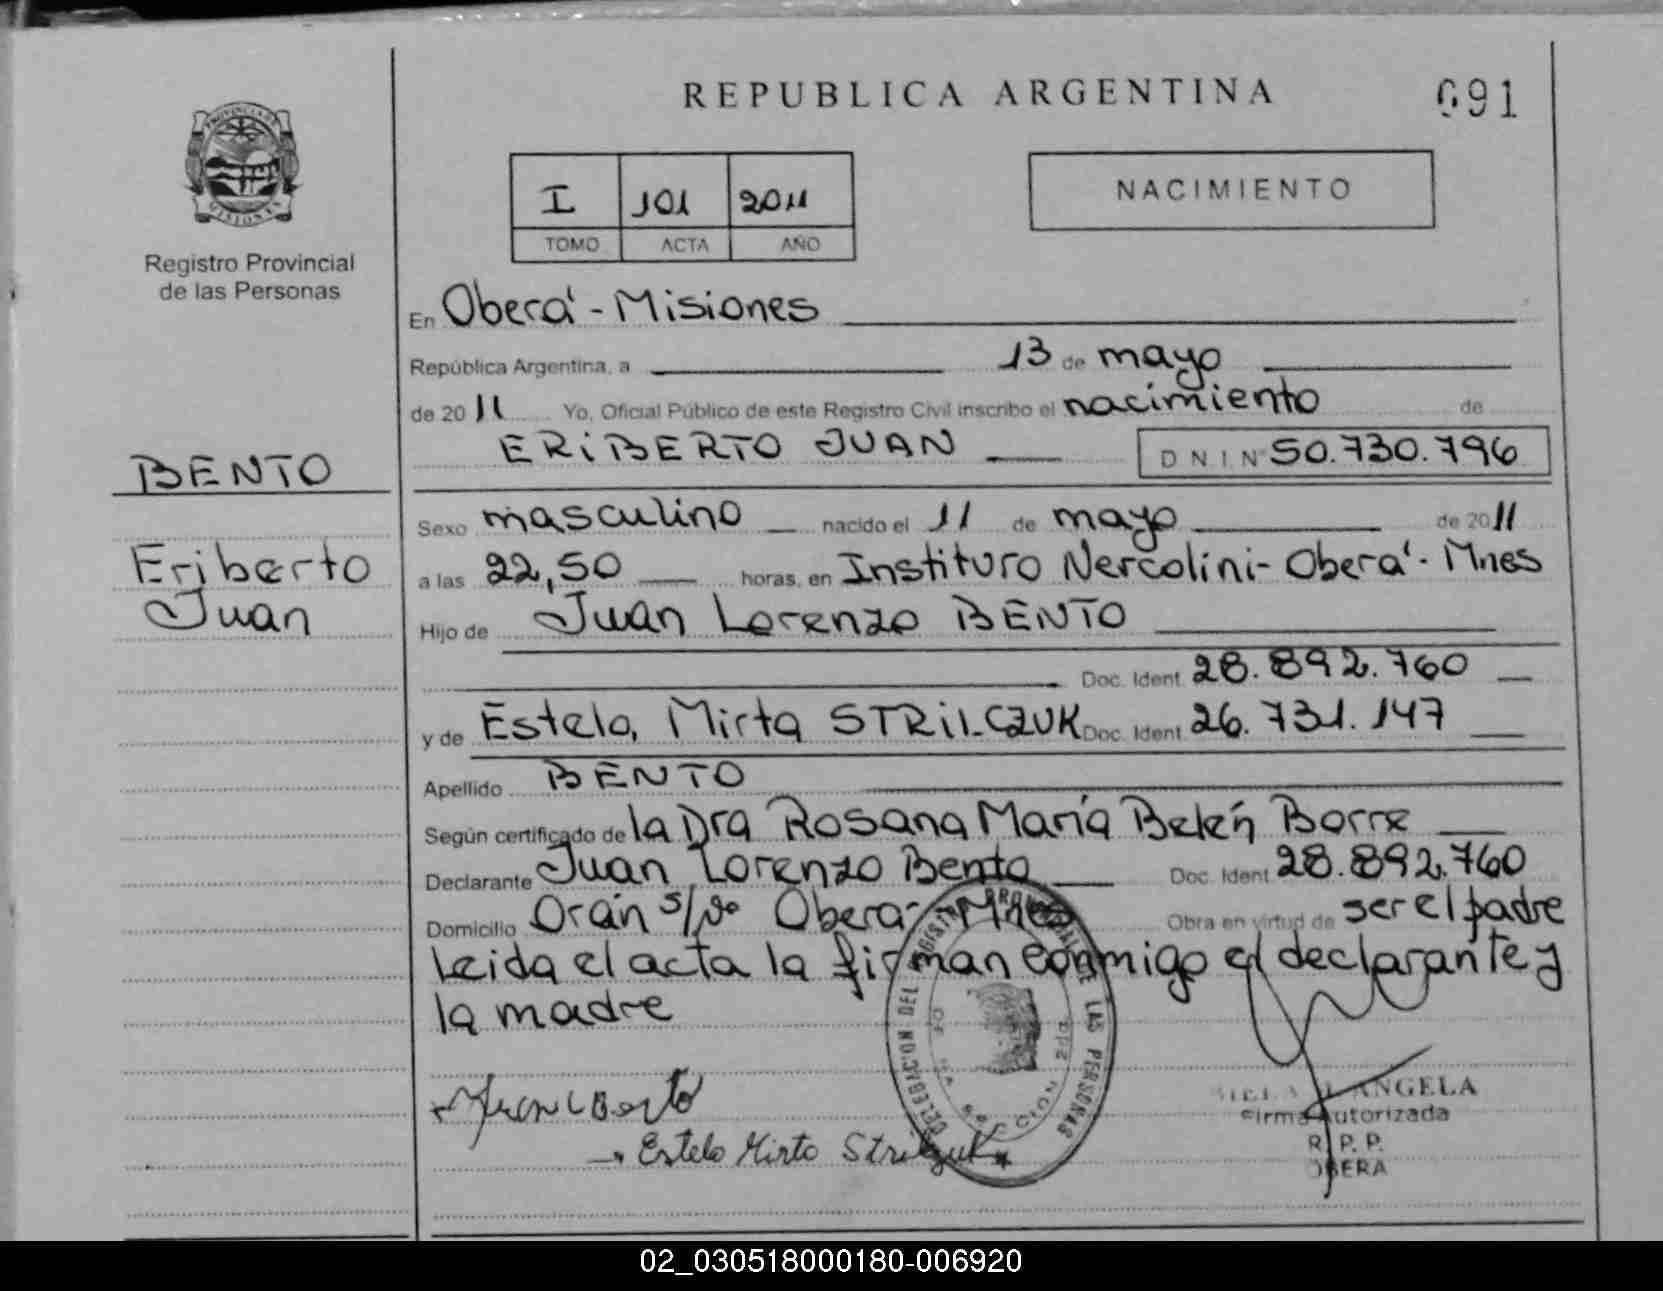 REPUBLICA ARGENTINA
091
PROVINCIA DE
MISIONES
Registro Provincial
de las Personas
I 101 2011
TOMO ACTA AÑO
NACIMIENTO
En Oberá - Misiones
República Argentina, a 13 de mayo
de 2011 Yo, Oficial Público de este Registro Civil inscribo el nacimiento de
ERIBERTO JUAN DNI Nº 50.730.796
BENTO
Eriberto
Juan
Sexo masculino nacido el 11 de mayo de 2011
a las 22,50 horas, en Instituto Nercolini - Oberá - Mnes
Hijo de Juan Lorenzo BENTO
Doc. Ident. 28.892.760
y de Estela, Mirta STRILCZUK Doc. Ident. 26.731.147
Apellido BENTO
Según certificado de la Dra Rosana María Belén Borre
Declarante Juan Lorenzo Bento Doc. Ident 28.892.760
Domicilio Orán s/nº Oberá - Mnes Obra en virtud de ser el padre
Leida el acta la firman conmigo el declarante y
la madre
DELEGACION DEL REGISTRO PROVINCIAL DE LAS PERSONAS
SECCION 2da.
Estela Mirta Strilczuk
ANGELA
Firma Autorizada
R. P. P.
OBERA
02_030518000180-006920